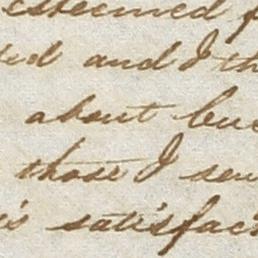 esteemed
and I th
about
those I sen
satisfac